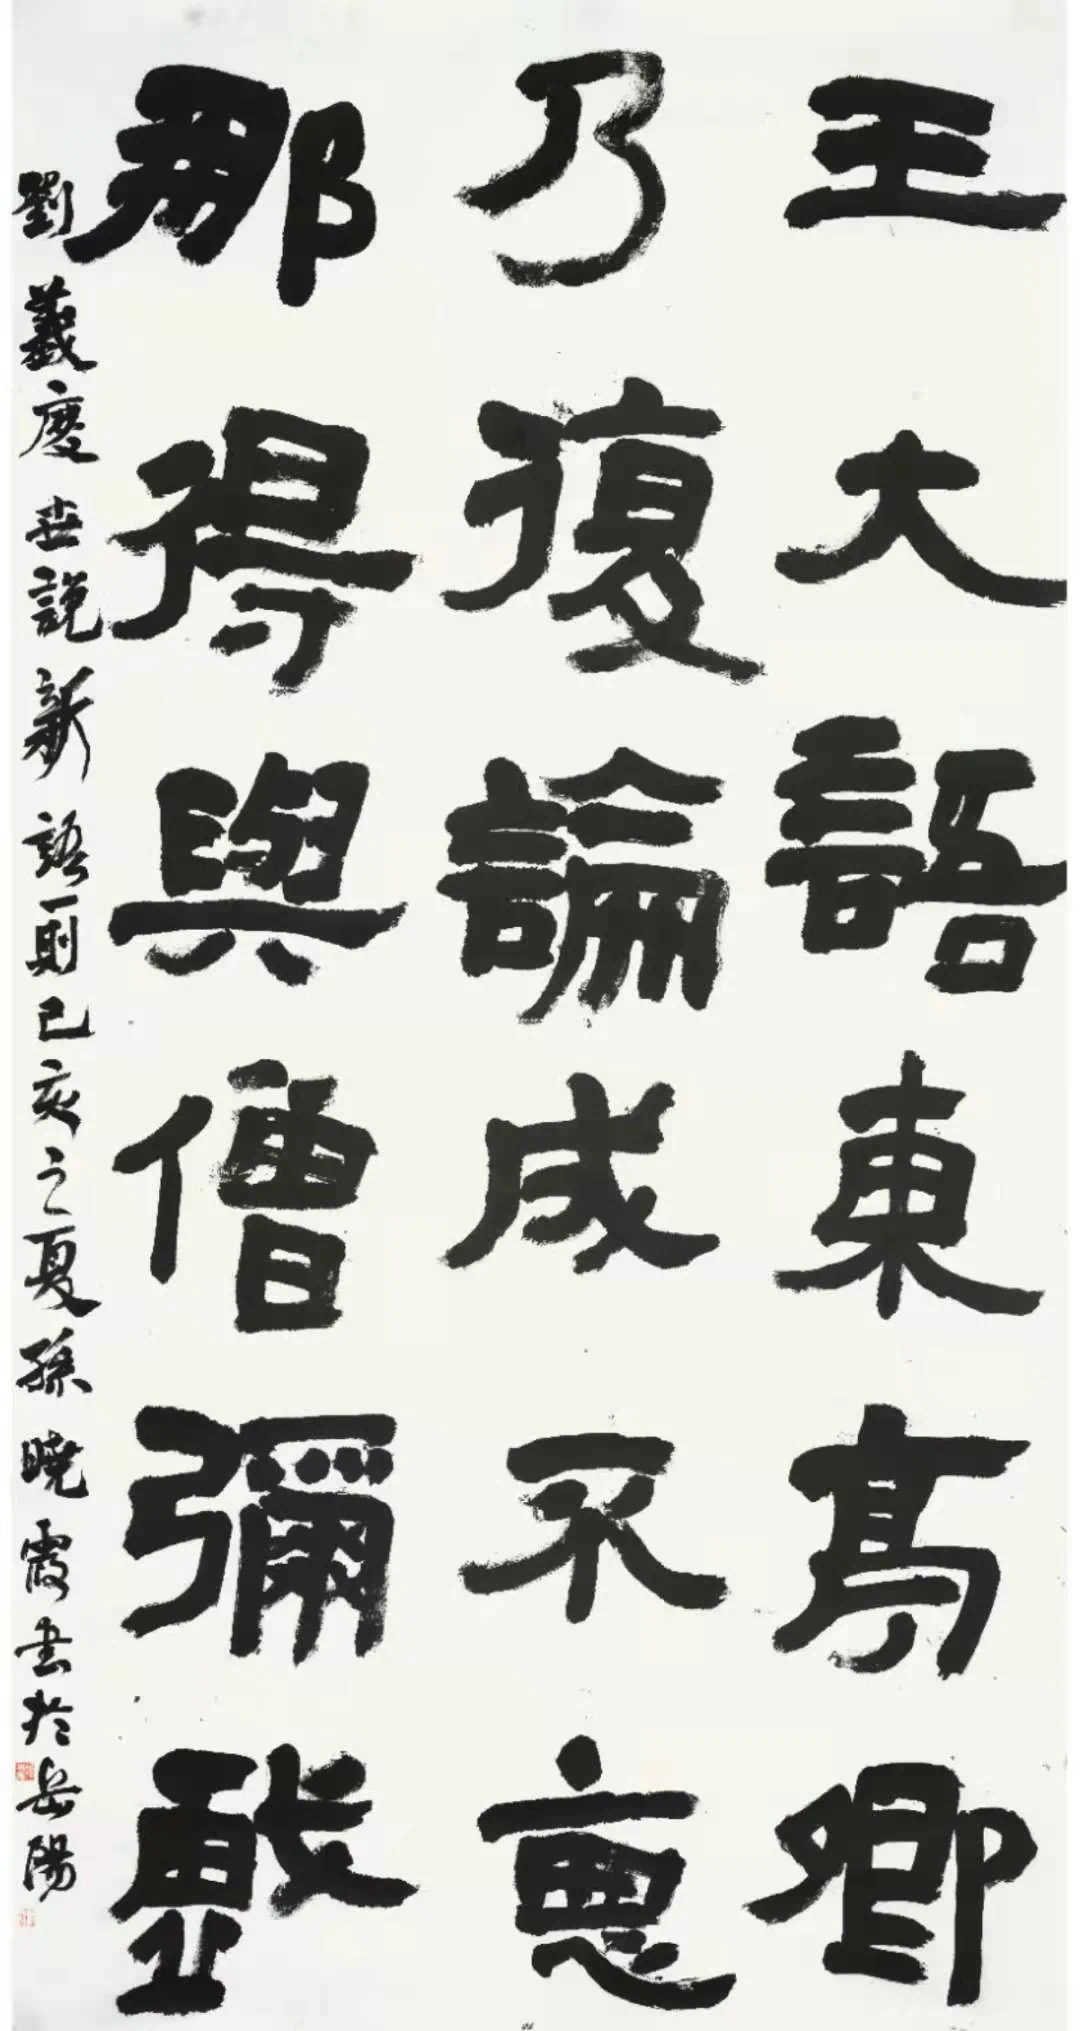 王大語東亭卿
乃復論成不惡
那得與僧彌戲
劉義慶世說新語一則己亥之夏孫曉霞書於岳陽